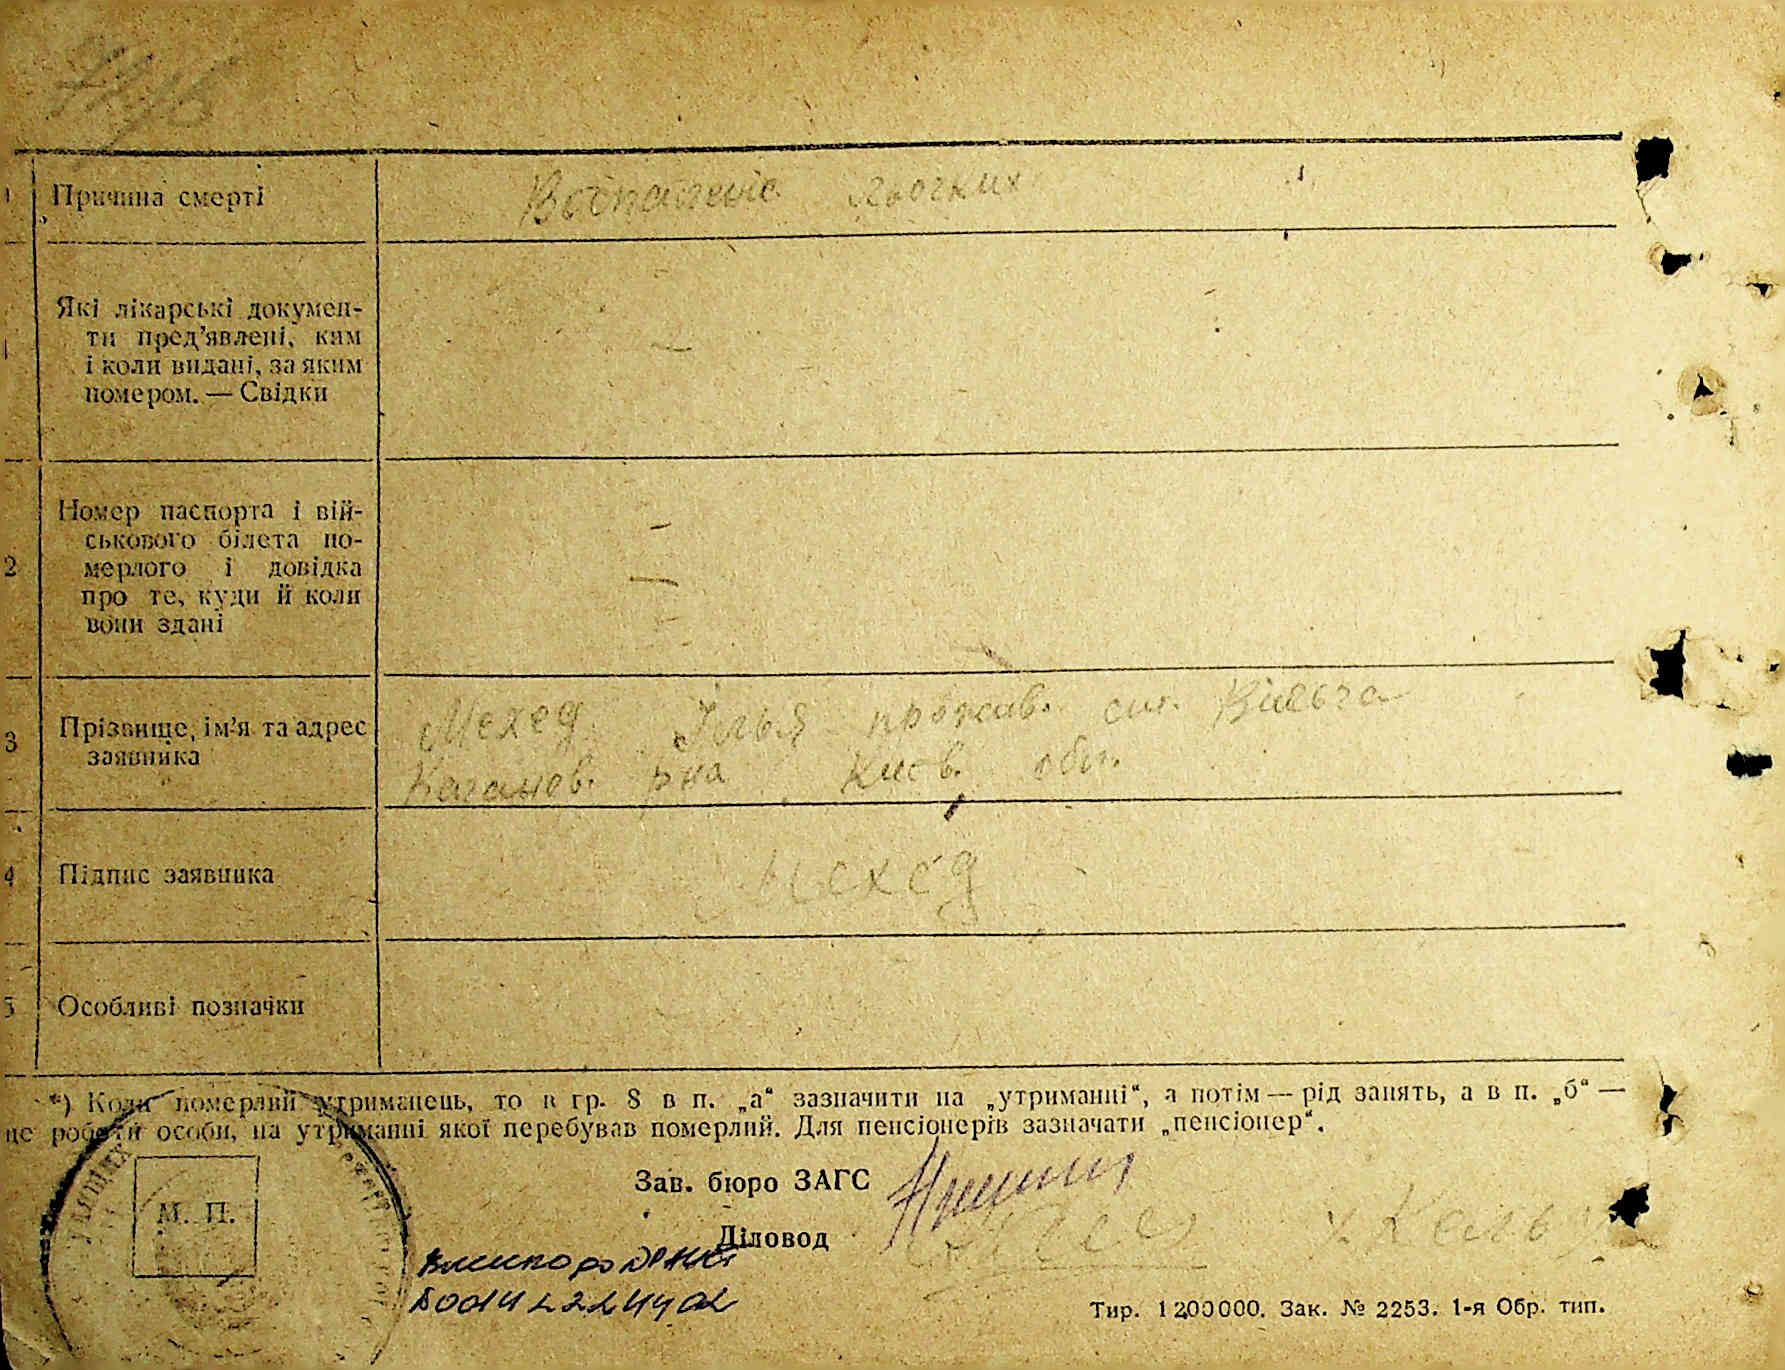 1 Причина смерті Воспаленіе льогких
Які лікарські докумен-
ти пред’явлені, ким
і коли видані, за яким
номером. — Свідки
—
Номер паспорта і вій-
ськового білета по-
2 мерлого і довідка
про те, куди й коли
вони здані
—
—
3 Прізвище, ім’я та адрес
заявника
Мехед Ілья прожив. сил. Вильча
Каганов. р-на Киев. обл.
4 Підпис заявника Мехед
5 Особливі позначки
*) Коли померлий утриманець, то в гр. 8 в п. „а“ зазначити на „утриманні“, а потім — рід занять, а в п. „б“ —
це роботи особи, на утриманні якої перебував померлий. Для пенсіонерів зазначати „пенсіонер“.
Зав. бюро ЗАГС
М. П.
Діловод
Тир. 1200000. Зак. № 2253. 1-я Обр. тип.